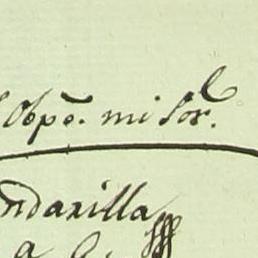 Obpō. mi Sor.
ndarilla
a